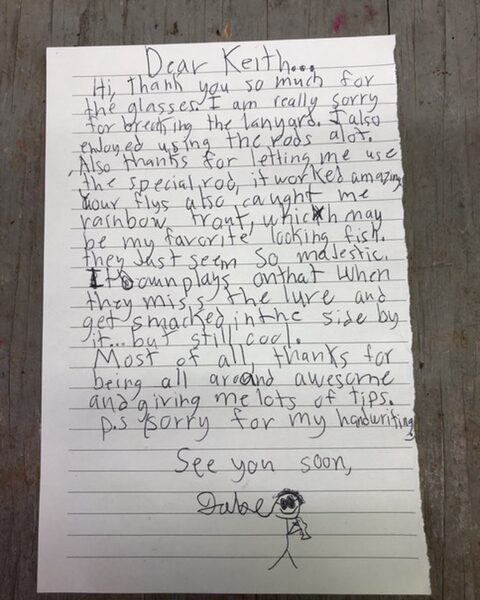 Dear Keith...
Hi, thank you so much for
the glasses. I am really sorry
for breaking the lanyard. I also
enjoyed using the rods alot.
Also thanks for letting me use
the special rod, it worked amazing
your flys also caught me
rainbow trout, which may
be my favorite looking fish.
they just seem so majestic.
It downplays on that when
they miss the lure and
get smacked in the side by
it... but still cool.
Most of all, thanks for
being all around awesome
and giving me lots of tips.
p.s sorry for my handwriting
See you soon,